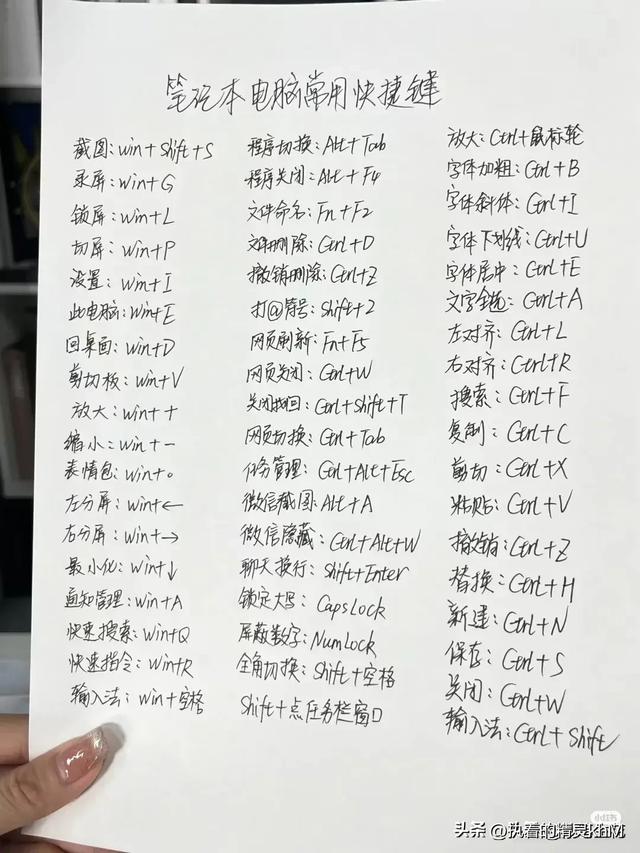 笔记本电脑常用快捷键
截图:win+shift+S
录屏:win+G
锁屏:win+L
切屏:win+P
设置:win+I
此电脑:win+E
回桌面:win+D
剪切板:win+V
放大:win++
缩小:win+-
表情包:win+。
左分屏:win+←
右分屏:win+→
最小化:win+↓
通知管理:win+A
快速搜索:win+Q
快速指令:win+R
输入法:win+空格
程序切换:Alt+Tab
程序关闭:Alt+F4
文件命名:Fn+F2
文件删除:Ctrl+D
撤销删除:Ctrl+Z
打@符号:Shift+2
网页刷新:Fn+F5
网页关闭:Ctrl+W
关闭找回:Ctrl+Shift+T
网页切换:Ctrl+Tab
任务管理:Ctrl+Alt+Esc
微信截图:Alt+A
微信隐藏:Ctrl+Alt+W
聊天换行:Shift+Enter
锁定大写:CapsLock
屏蔽数字:NumLock
全角切换:Shift+空格
Shift+点任务栏窗口
放大:Ctrl+鼠标轮
字体加粗:Ctrl+B
字体斜体:Ctrl+I
字体下划线:Ctrl+U
字体居中:Ctrl+E
文字全选:Ctrl+A
左对齐:Ctrl+L
右对齐:Ctrl+R
搜索:Ctrl+F
复制:Ctrl+C
剪切:Ctrl+X
粘贴:Ctrl+V
撤销:Ctrl+Z
替换:Ctrl+H
新建:Ctrl+N
保存:Ctrl+S
关闭:Ctrl+W
输入法:Ctrl+Shift
小红书
头条 @执着的精灵kbM